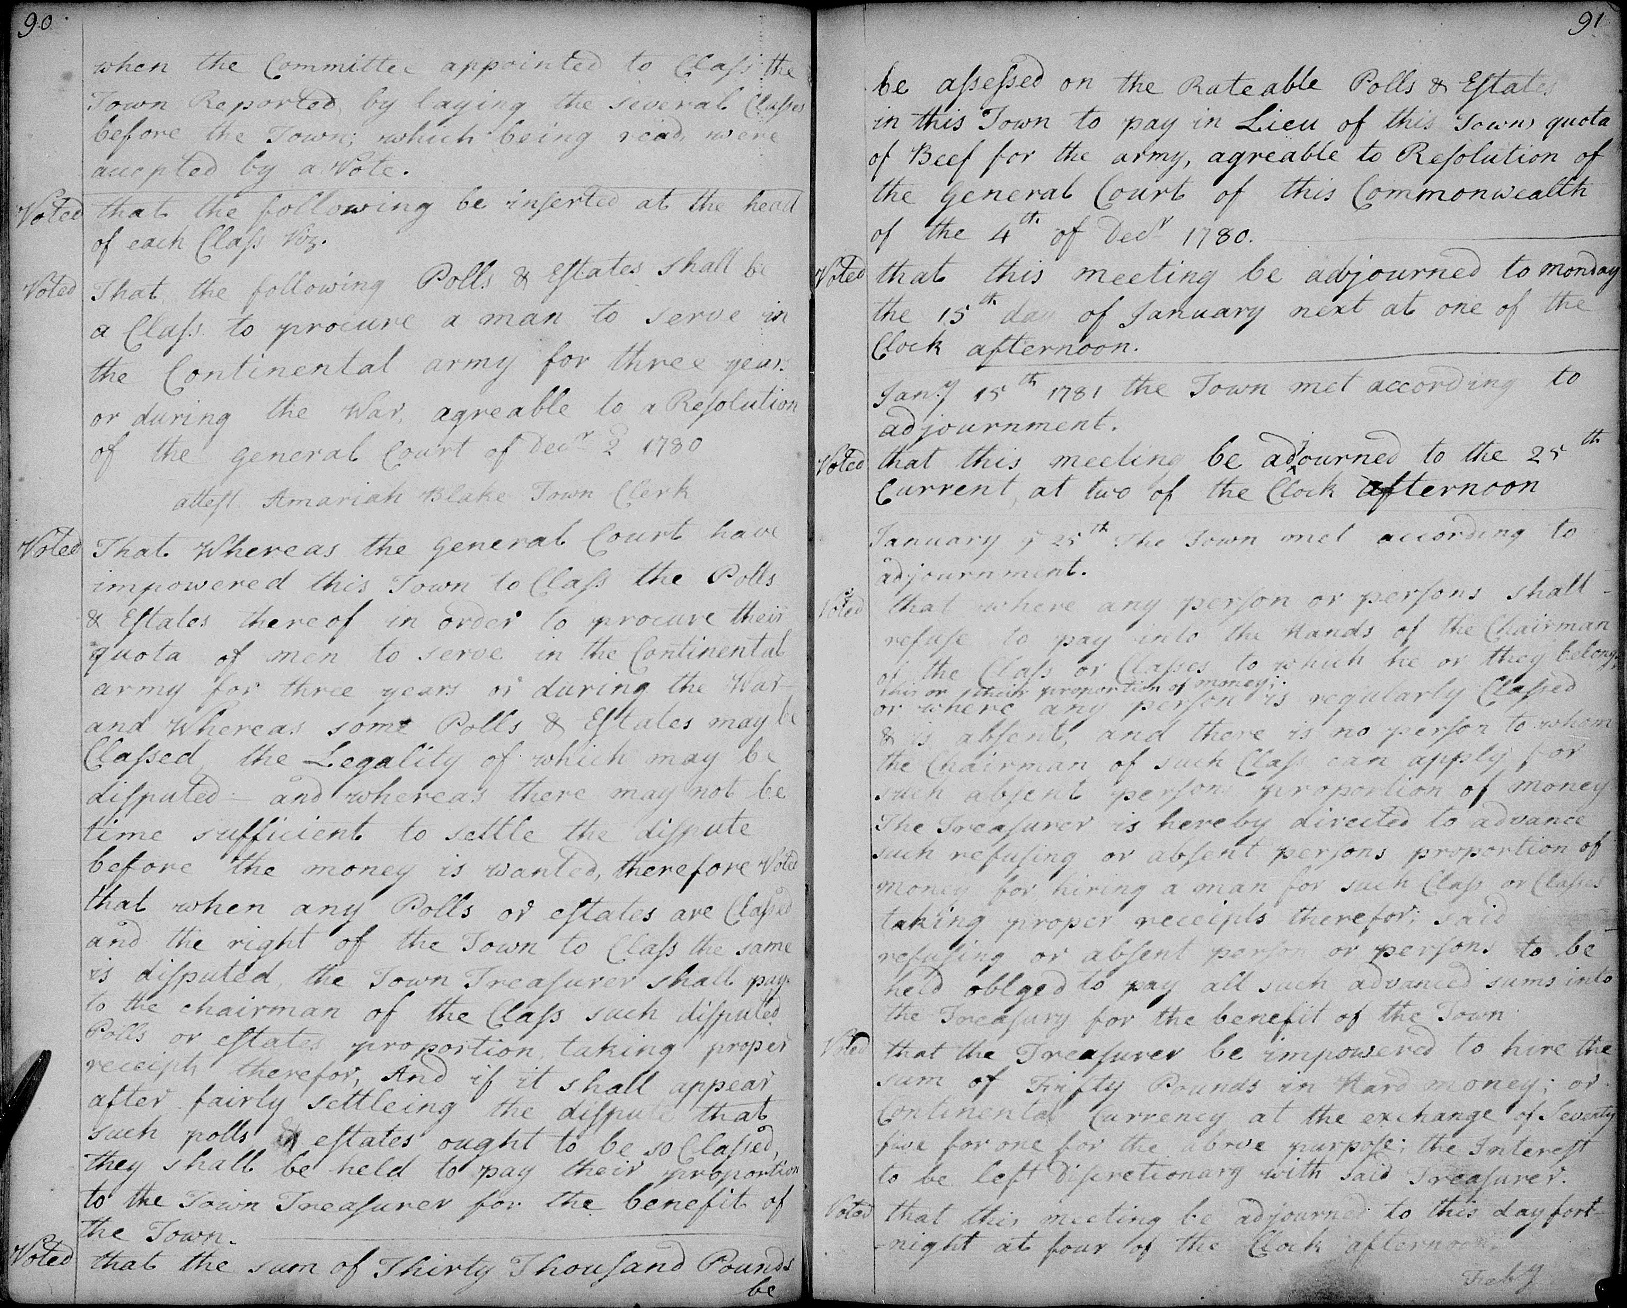 90
when the Committee appointed to Class the
Town Reported by laying the several Classes
before the Town; which being read were
accepted by a Vote.
Voted that the following be inserted at the head
of each Class Viz.
Voted That the following Polls & Estates shall be
a Class to procure a man to serve in
the Continental army for three years
or during the War, agreable to a Resolution
of the general Court of Decr. 2d 1780
attest Amariah Blake Town Clerk
Voted That Whereas the general Court have
impowered this Town to Class the Polls
& Estates thereof in order to procure their
quota of men to serve in the Continental
army for three years or during the War
and Whereas some Polls & Estates may be
Classed, the Legality of which may be
disputed - and whereas there may not be
time sufficient to settle the dispute
before the money is wanted, therefore Voted
that when any Polls or estates are Classed
and the right of the Town to Class the same
is disputed, the Town Treasurer shall pay
to the chairman of the Class such disputed
Polls or estates proportion, taking proper
receipts therefor, And if it shall appear
after fairly settleing the dispute that
such polls & estates ought to be so Classed,
they shall be held to pay their proportion
to the Town Treasurer for the benefit of
the Town.
Voted that the sum of Thirty Thousand Pounds
be
91
be assessed on the Rateable Polls & Estates
in this Town to pay in Lieu of this Towns quota
of Beef for the army, agreable to Resolution of
the general Court of this Commonwealth
of the 4th of Decr 1780.
Voted that this meeting be adjourned to monday
the 15th day of January next at one of the
Clock afternoon.
Jany 15th 1781 the Town met according to
adjournment.
Voted that this meeting be adjourned to the 25th
Current, at two of the Clock afternoon
January ye 25th The Town met according to
adjournment.
Voted that where any person or persons shall
refuse to pay into the Hands of the Chairman
of the Class or Classes to which he or they belong,
his or their proportion of money;
or where any person is regularly Classed
& is absent, and there is no person to whom
the Chairman of such Class can apply for
such absent persons proportion of money
The Treasurer is hereby directed to advance
such refusing or absent persons proportion of
money for hiring a man for such Class or Classes
taking proper receipts therefor; said
refusing or absent person or persons to be
held oblged to pay all such advanced sums into
the Treasury for the benefit of the Town
Voted that the Treasurer be impowered to hire the
sum of Fifty Pounds in Hard money; or
Continental Currency at the exchange of Seventy
five for one for the above purpose; the Interest
to be left Discretionary with said Treasurer.
Voted that this meeting be adjourned to this day fort-
-night at four of the Clock afternoon.
Feby